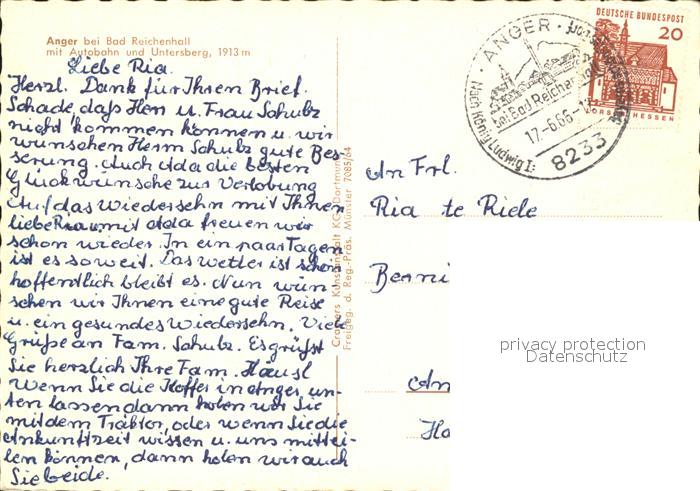 Anger bei Bad Reichenhall
mit Autobahn und Untersberg, 1913 m
Liebe Ria.
Herzl. Dank für Ihren Brief.
Schade, daß Herr u. Frau Schulz
nicht kommen können u. wir
wünschen Herrn Schulz gute Bes-
serung. Auch Ada die besten
Glückwünsche zur Verlobung
Auf das Wiedersehn mit Ihnen
liebe Ria u. mit Ada freuen wir
schon wieder. In ein paar Tagen
ist es soweit. Das Wetter ist schön
hoffentlich bleibt es. Nun wün-
schen wir Ihnen eine gute Reise
u. ein gesundes Wiedersehn. Viele
Grüße an Fam. Schulz. Es grüßt
Sie herzlich Ihre Fam. Häusl
Wenn Sie die Koffer in Anger un-
ten lassen dann holen wir Sie
mit dem Traktor, oder wenn Sie die
Ankunftzeit wissen u. uns mittei-
len können, dann holen wir auch
Sie beide.
Cramers Kunstanstalt KG, Dortmund
Freigeg. d. Reg.-Präs. Münster 7085/64
DEUTSCHE BUNDESPOST
20
LORSCH HESSEN
ANGER
bei Bad Reichenhall
nach König Ludwig I:
17.-6.66-1
8233
An Frl.
Ria te Riele
Berni
An
Ha
privacy protection
Datenschutz